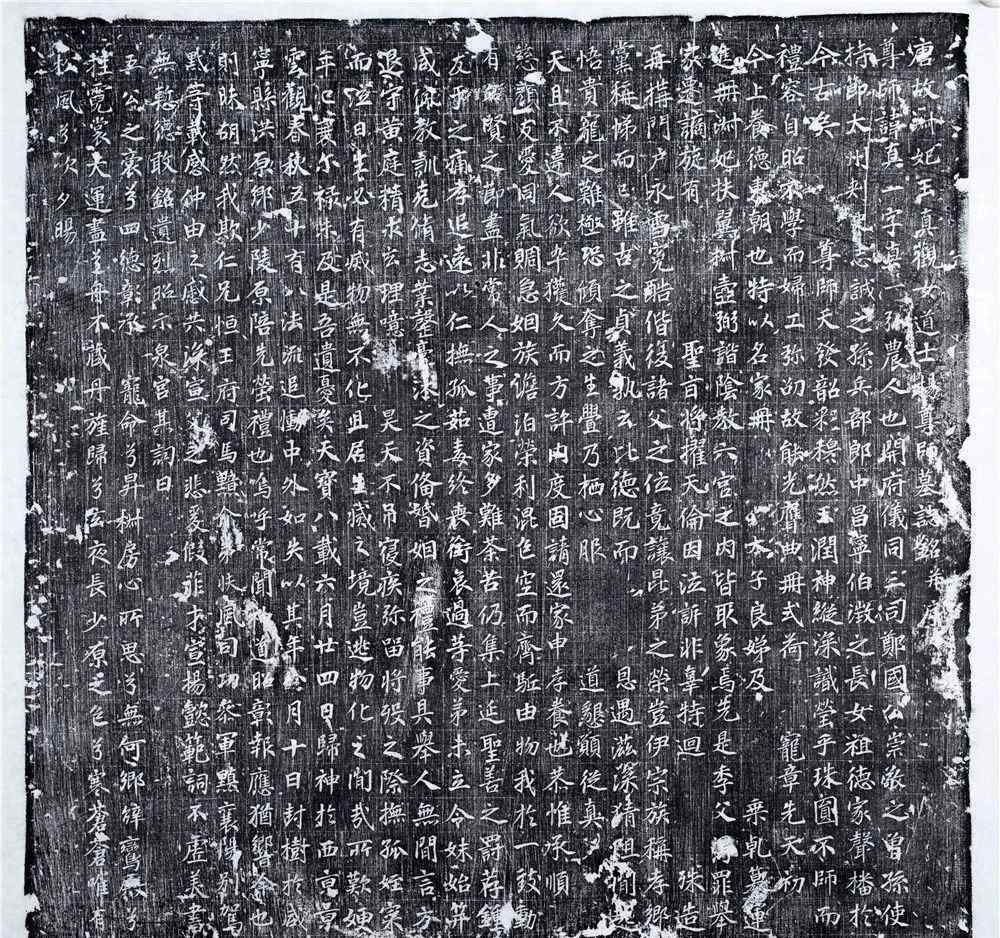 唐故淑妃玉真觀女道士楊尊師墓誌銘并序
尊師諱真一字真一弘農人也開府儀同三司鄭國公崇敬之曾孫使
持節大州刺史志誠之孫兵部郎中昌寧伯澂之長女祖德家聲播於
今古矣尊師天發韶穆然玉潤神縱深識瑩乎珠圓不師而
禮容自昭不學而婦工弥劭故能光膺典冊式荷寵章先天初
今上養德東朝也特以名家冊太子良娣及乘乹纂運
進冊淑妃扶翼樹壼弼諧陰教六宮之內皆取象焉先是季父罪舉
家遷謫旋有聖旨將擢天倫因泣訴非辜特迴殊造
再搆門户永雪冤酷偕復諸父之位竟讓昆弟之榮豈伊宗族稱孝鄉
黨稱悌而已雖古之貞義孰云比德既而恩遇滋深猜阻間起
悟貴寵之難極恐傾奪之生舋乃栖心服道懇願從真
天且不違人欲卒獲久而方許由度固請還家申孝養也恭惟承順
慈顏友愛同氣賙急姻族儋泊榮利混色空而齊駈由物我於一致動
有賢之節盡非常人之事遭家多難荼苦仍集上延聖善之罸荐鍾
友于之痛孝追遠以仁撫孤茹毒終喪銜哀過等愛弟未立令妹始笄
咸佩教訓克脩志業罄臺法之資備婚姻之禮能事具舉人無間言方
退守黄庭精求玄理噫昊天不吊寢疾弥留將歿之際撫孤姪寀
而泣曰生必有滅物無不化且居生滅之境豈逃物化之間哉所歎妯
年汜襄尒祿未及是吾遺憂矣天寶八載六月廿四日歸神於西京景
雲觀春秋五十有八法流追慟中外如失以其年月十日封樹於咸
寧縣洪原鄉少陵原陪先塋禮也嗚呼常聞道昭彰報應猶響答也
則昧胡然我欺仁兄恒王府司馬難弇弟扶風司功叅軍黯襄陽别駕
黙等載感仲由之感共深宣父之悲爰假菲才豈揚懿範詞不虛美書
無慙德敢銘遺烈昭示泉宫其詞曰
五公之裔兮四德彰承寵命兮昇椒房心所思兮無何鄉綷鸞裾兮
挂霓裳大運盡兮舟不藏丹旌歸兮玄夜長少原之色兮寒蒼蒼唯有
松風兮吹夕陽